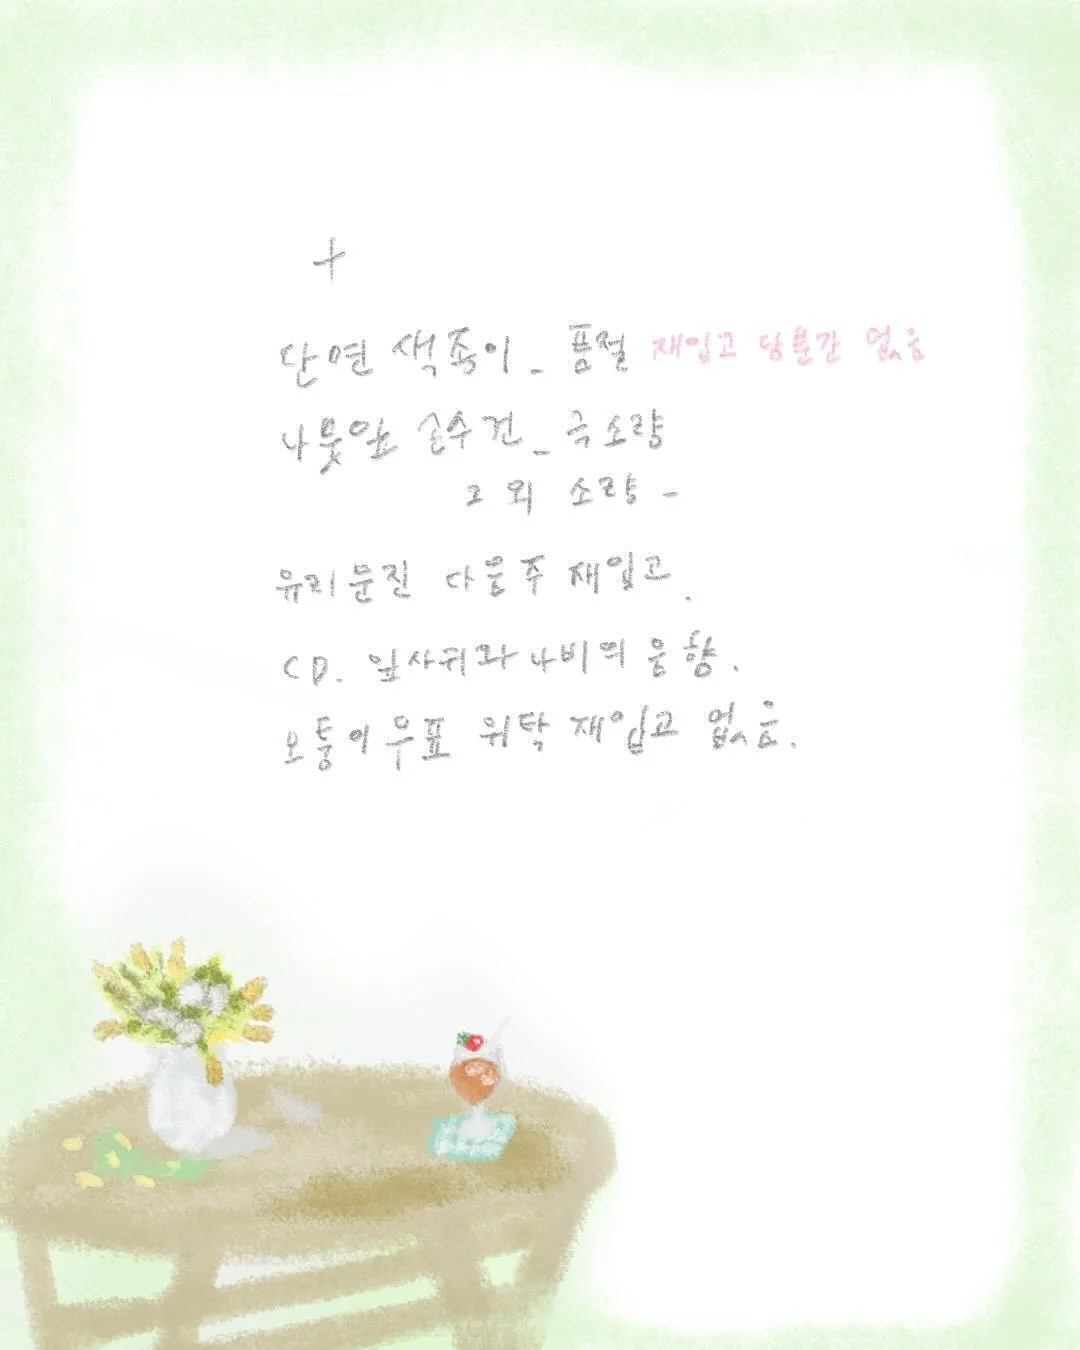 +
단면 색종이_품절 재입고 당분간 없음
나뭇잎 손수건_극소량
그 외 소량-
유리문진 다음주 재입고.
CD. 잎사귀와 나비의 음향.
모퉁이우표 위탁 재입고 없음.